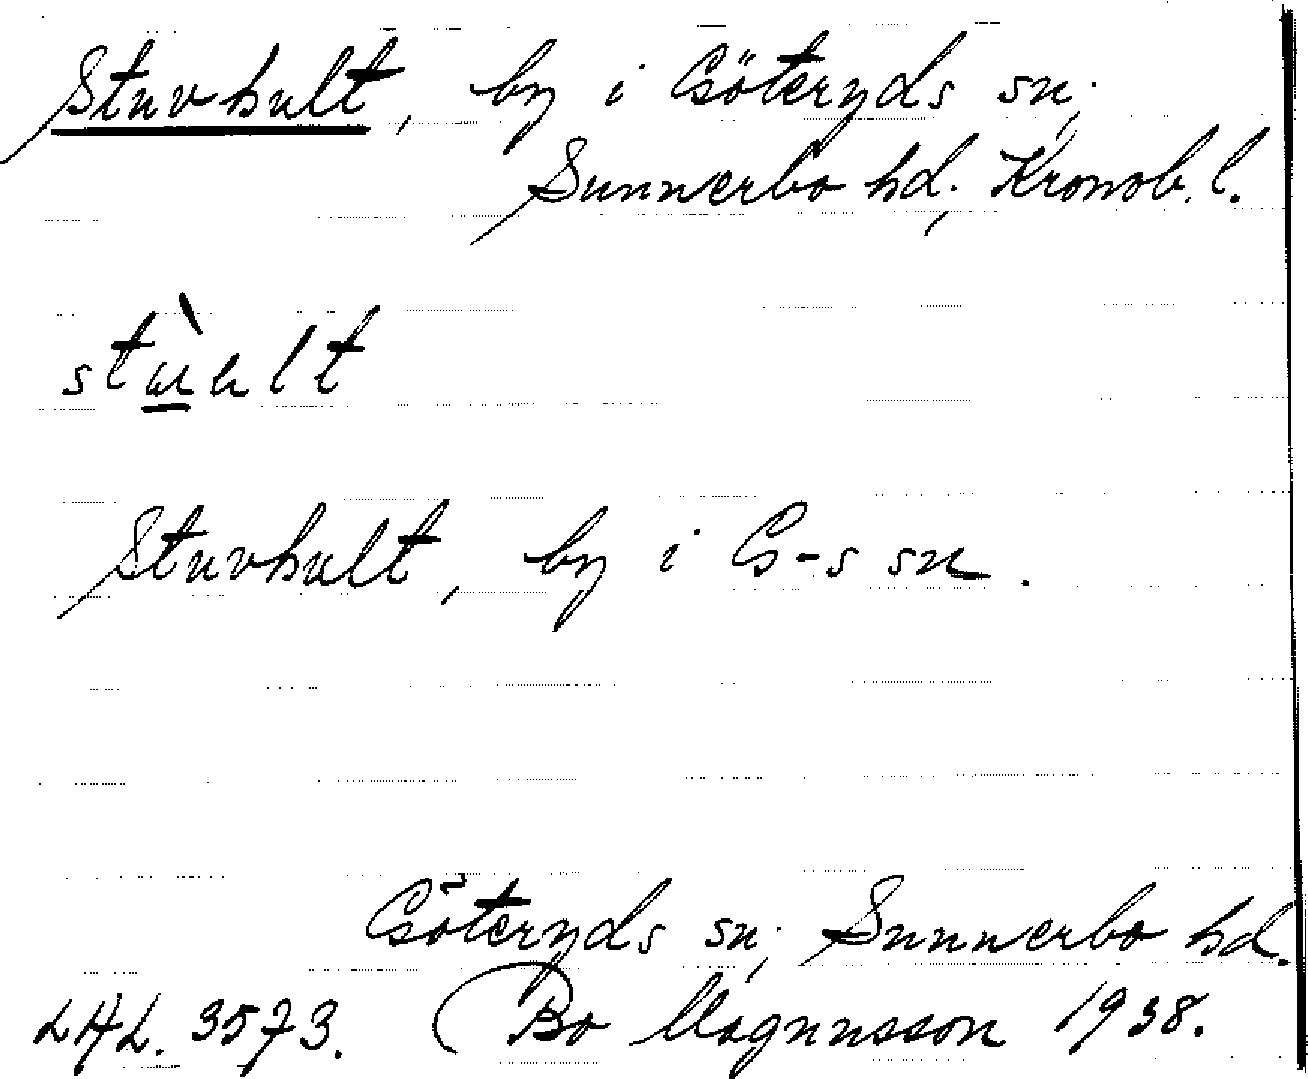 Stuvhult, by i Göteryds sn,
Sunnerbo hd, Kronob. l.
stùhlt
Stuvhult, by i G-s sn.
Göteryds sn, Sunnerbo hd.
LAL. 3573. Bo Magnusson 1938.